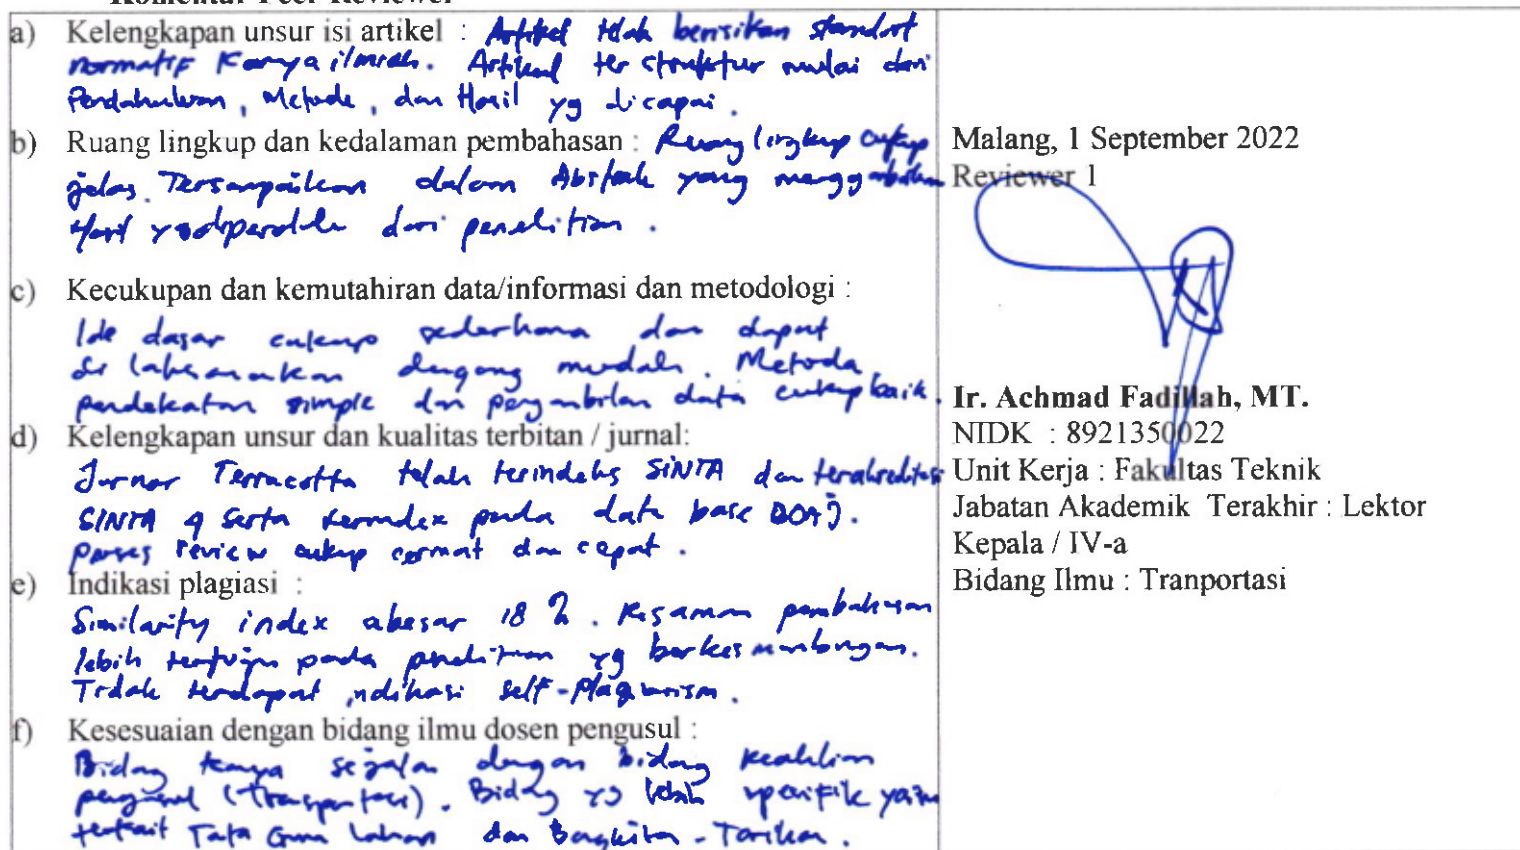 Komentar Peer Reviewer
a) Kelengkapan unsur isi artikel : Artikel telah berisikan standart
normatif Karya ilmiah. Artikel terstruktur mulai dari
Pendahuluan, Metode, dan Hasil yg dicapai.
b) Ruang lingkup dan kedalaman pembahasan : Ruang lingkup cukup
jelas. Tersampaikan dalam Abstrak yang
Hasil yg diperoleh dari penelitian.
c) Kecukupan dan kemutahiran data/informasi dan metodologi :
Ide dasar cukup sederhana dan dapat
di laksanakan mudah. Metoda
pendekatan simple dan pengambilan data cukup baik.
d) Kelengkapan unsur dan kualitas terbitan / jurnal:
Terracotta telah terindeks SINTA dan terakreditasi
SINTA 4 serta pada data base DOAJ.
review cukup cermat dan cepat.
e) Indikasi plagiasi :
Similarity index 18 %. pembahasan
lebih pada penelitian yg
Tidak terdapat indikasi self-plagiarism.
f) Kesesuaian dengan bidang ilmu dosen pengusul :
Bidang karya sejalan dengan bidang keahlian
pengusul (Transportasi). Bidang yg lebih spesifik yaitu
terkait Tata Guna Lahan dan Bangkitan - Tarikan.
Malang, 1 September 2022
Reviewer 1
Ir. Achmad Fadillah, MT.
NIDK : 8921350022
Unit Kerja : Fakultas Teknik
Jabatan Akademik Terakhir : Lektor
Kepala / IV-a
Bidang Ilmu : Tranportasi